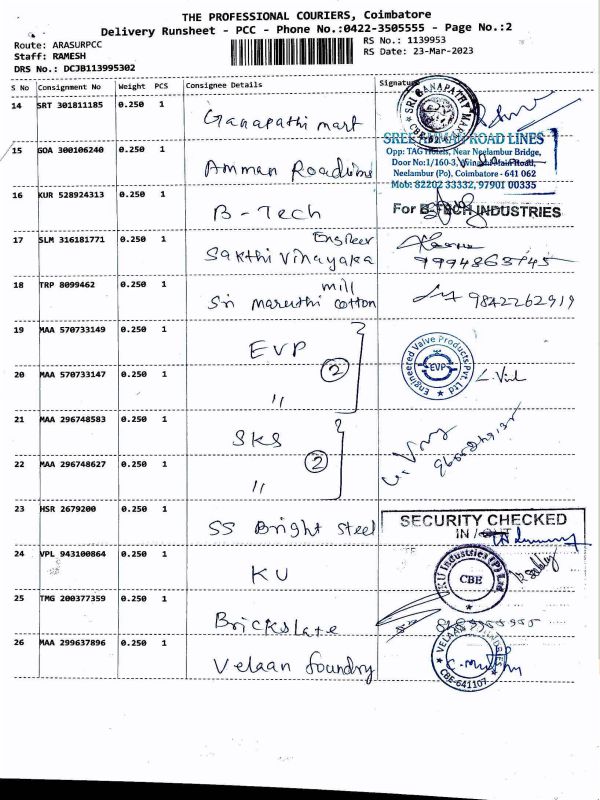 THE PROFESSIONAL COURIERS, Coimbatore
Delivery Runsheet - PCC - Phone No.:0422-3505555 - Page No.:2
Route: ARASURPCC
RS No.: 1139953
Staff: RAMESH
RS Date: 23-Mar-2023
DRS No.: DCJB113995302
S No Consignment No Weight PCS Consignee Details Signature
14 SRT 301811185 0.250 1 Ganapathi mart
SRI GANAPATHY
15 GOA 300106240 0.250 1 Amman Roadlines
SREE AMMAN ROAD LINES
Opp: TAG Hotels, Near Neelambur Bridge,
Door No:1/160-3, Main Road,
Neelambur (Po), Coimbatore - 641 062
Mob: 82202 33332, 97901 00335
16 KUR 528924313 0.250 1 B-Tech
For B-TECH INDUSTRIES
17 SLM 316181771 0.250 1 Sakthi Vinayaka Engineer
18 TRP 8099462 0.250 1 Sri Maruthi cotton mill
9842262919
19 MAA 570733149 0.250 1 EVP
2
Engineered Valve Products Pvt. Ltd
EVP
20 MAA 570733147 0.250 1 "
21 MAA 296748583 0.250 1 SKS
2
22 MAA 296748627 0.250 1 "
23 HSR 2679200 0.250 1 SS Bright Steel
SECURITY CHECKED
IN / OUT
24 VPL 943100864 0.250 1 KU
Industries (P) Ltd.
CBE
25 TMG 200377359 0.250 1 Brickslate
26 MAA 299637896 0.250 1 Velaan foundry
VELAAN
CBE-641107